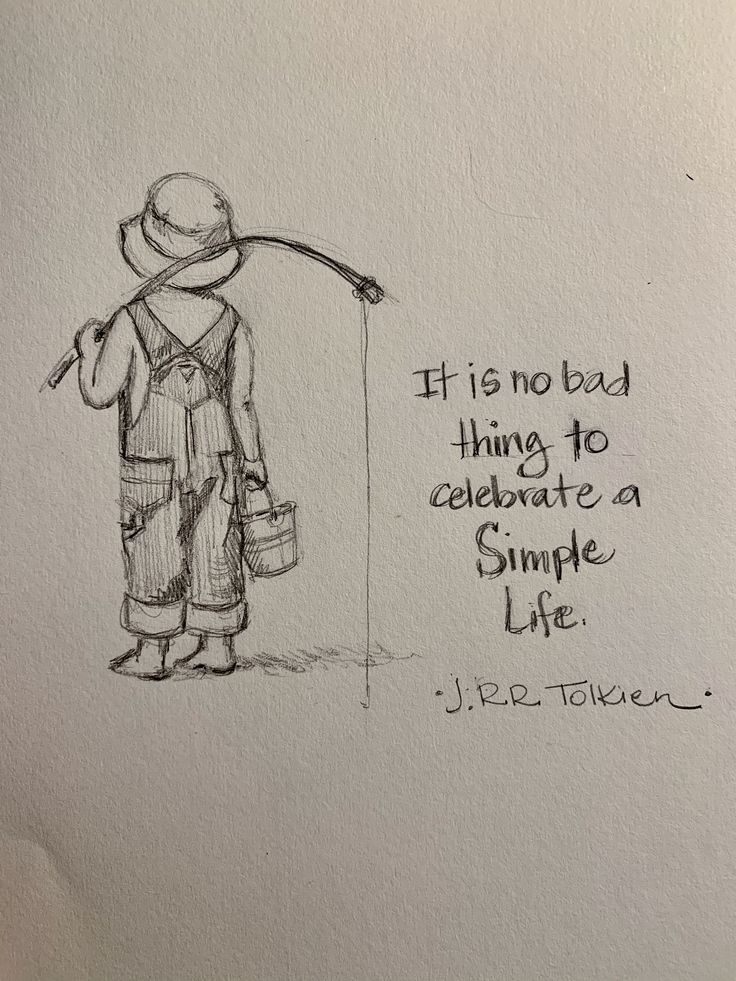 It is no bad
thing to
celebrate a
Simple
Life.
·J.RR Tolkien·